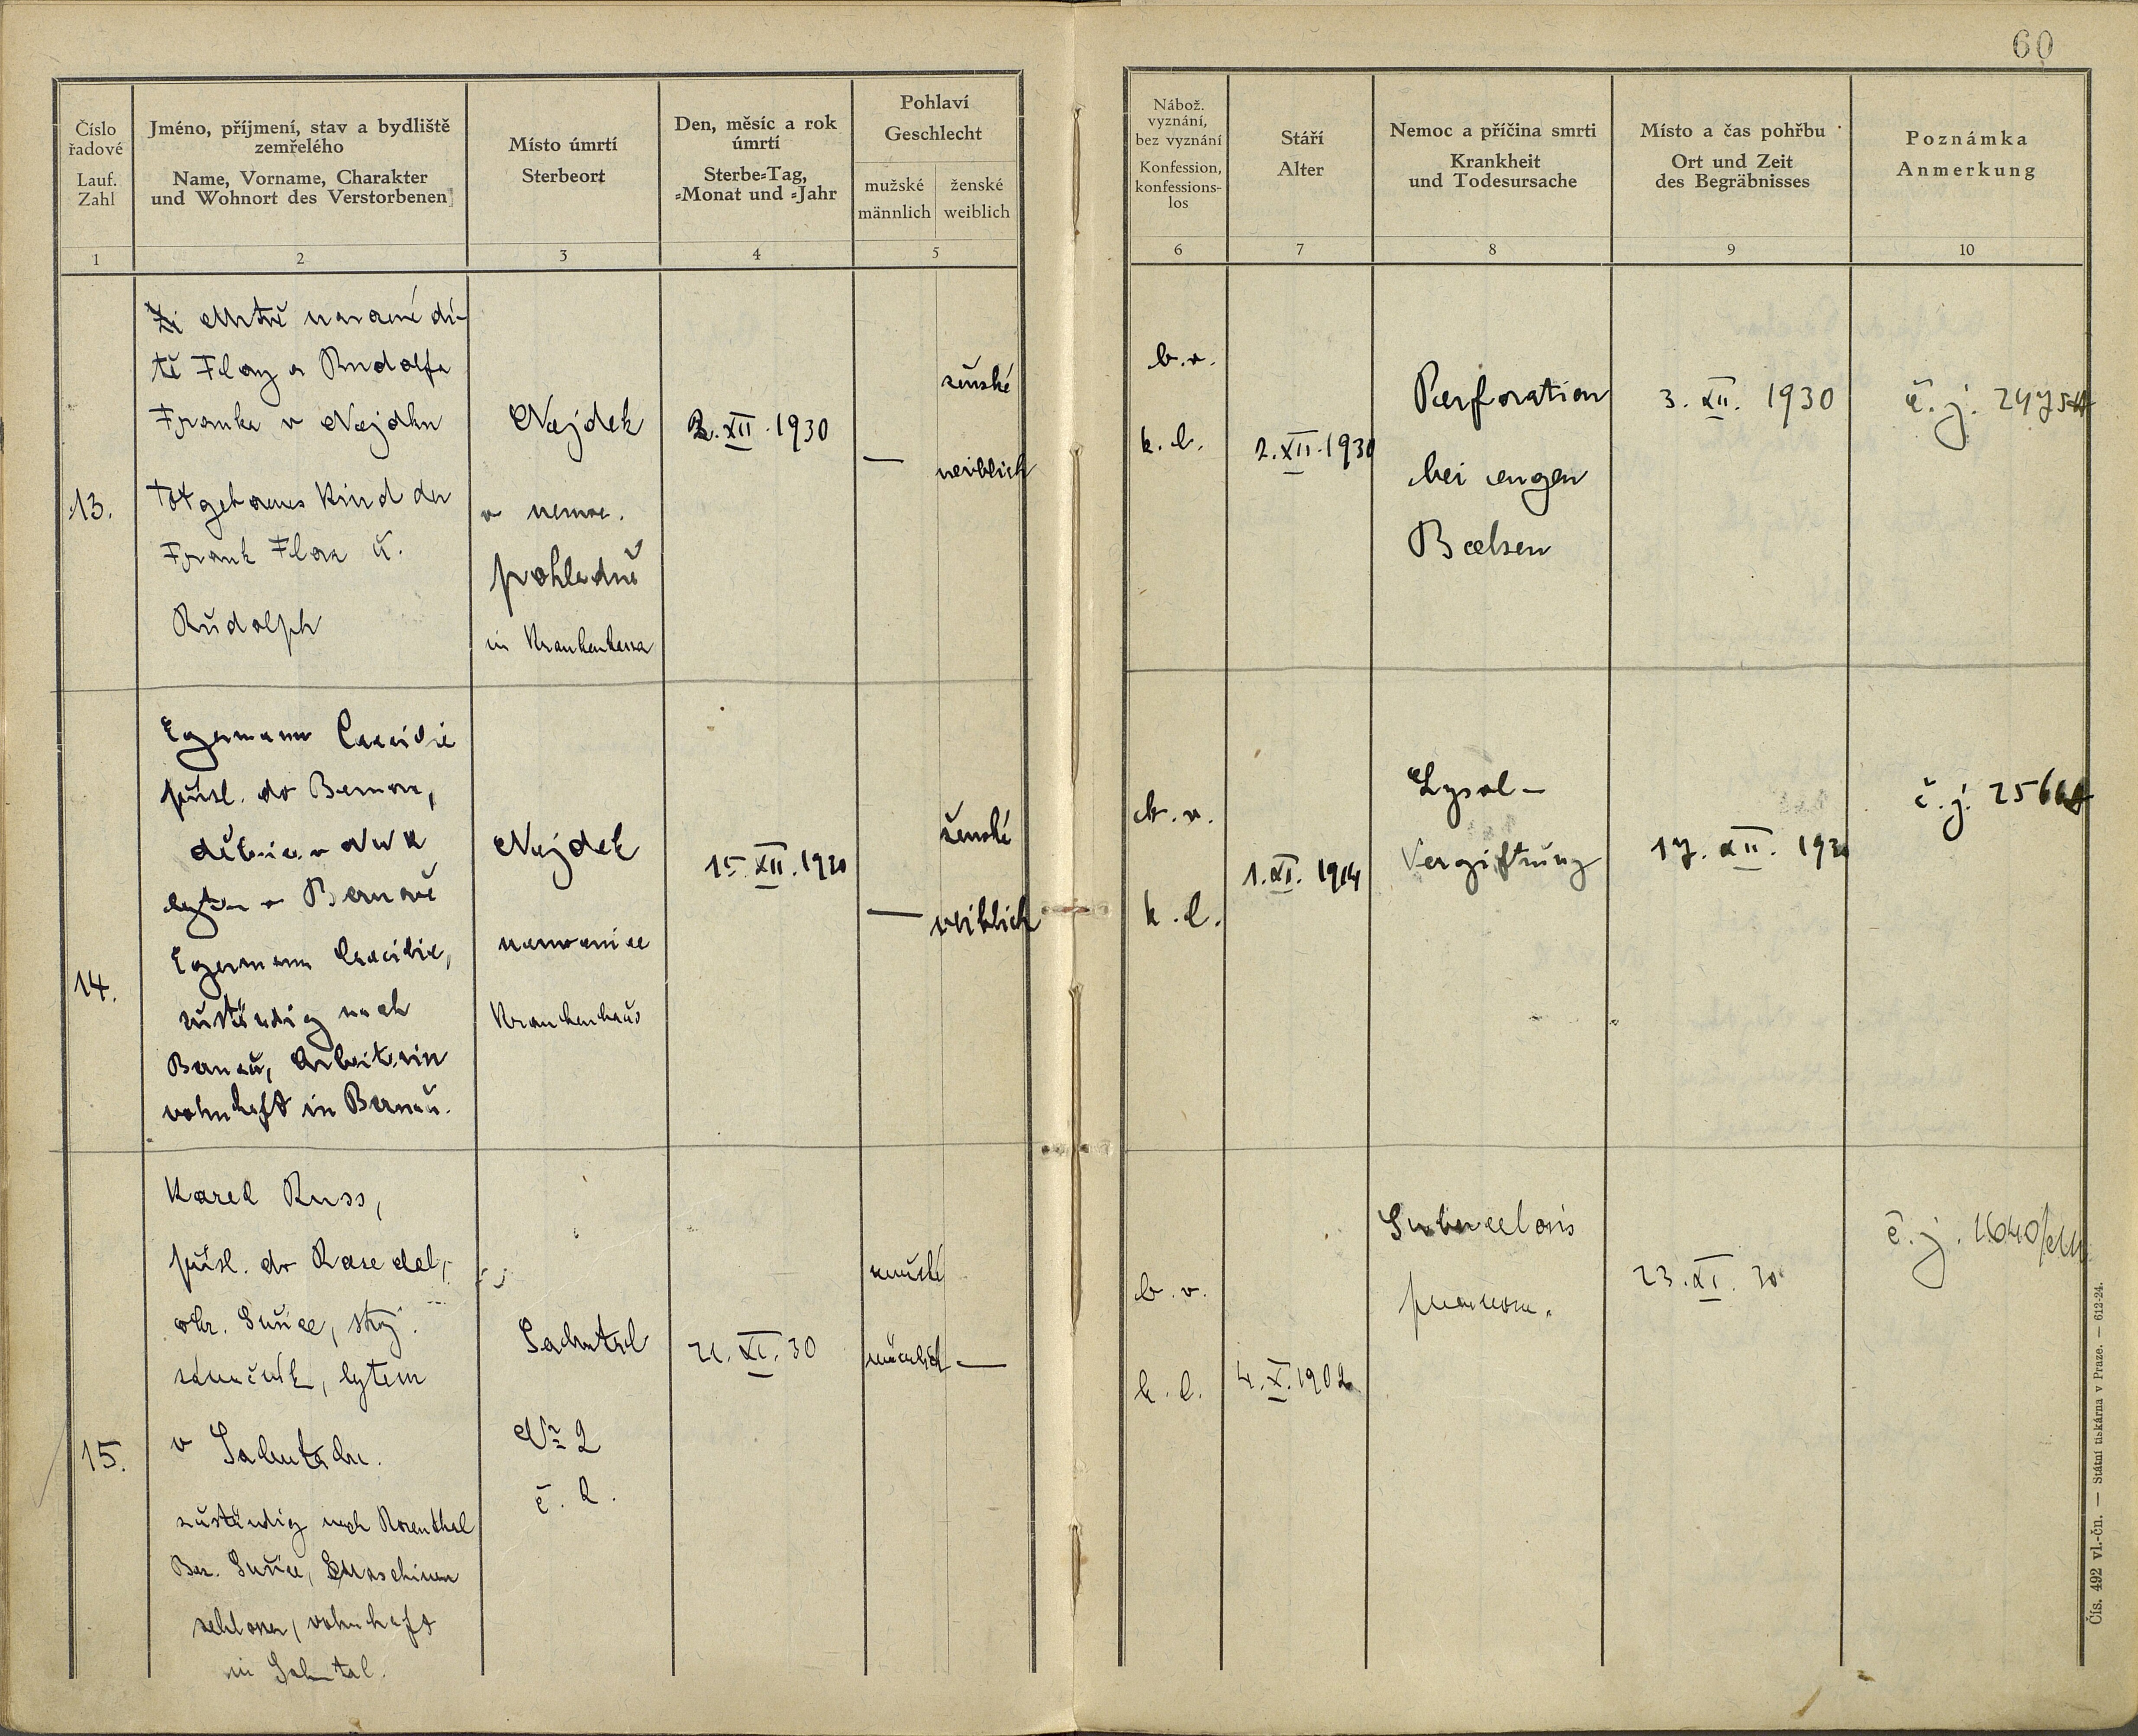 60
Číslo
řadové
Lauf.
Zahl
Jméno, příjmení, stav a bydliště
zemřelého
Name, Vorname, Charakter
und Wohnort des Verstorbenen
Místo úmrtí
Sterbeort
Den, měsíc a rok
úmrtí
Sterbe-Tag,
-Monat und -Jahr
Pohlaví
Geschlecht
mužské
männlich
ženské
weiblich
Nábož.
vyznání,
bez vyznání
Konfession,
konfessions-
los
Stáří
Alter
Nemoc a příčina smrti
Krankheit
und Todesursache
Místo a čas pohřbu
Ort und Zeit
des Begräbnisses
Poznámka
Anmerkung
1 2 3 4 5 6 7 8 9 10
13.
Mrtvě narozené dí-
tě Flory a Rudolfa
Franka v Nejdku
Totgeborenes Kind der
Frank Flora u.
Rudolph
Nejdek
v nemoc.
in Krankenhaus
2. XII. 1930
—
ženské
weiblich
b. v.
k. l.
2. XII. 1930
Perforation
bei engen
Becken
3. XII. 1930
č. j.
14.
Egermann Caecilie
přísl. do Bernova,
dělnice v
bytem v Bernově
Egermann Caecilie,
zuständig nach
Bernau, Arbeiterin
wohnhaft in Bernau.
Nejdek
nemocnice
Krankenhaus
15. XII. 1930
—
ženské
weiblich
b. v.
k. l.
1. XI. 1914
Lysol-
Vergiftung
17. XII. 1930
č. j.
15.
Karel Russ,
přísl. do
okr. Sušice, stroj.
zámečník, bytem
v
zuständig nach Rosenthal
Bez. Sušice, Maschinen
schlosser, wohnhaft
in
No 2
č. 2.
21. XI. 30
mužské
männlich
—
b. v.
k. l.
4. X. 1902
Tuberculosis
pulmonum.
23. XI. 30
č. j.
Čís. 492 vl.-čn. — Státní tiskárna v Praze. — 612-24.